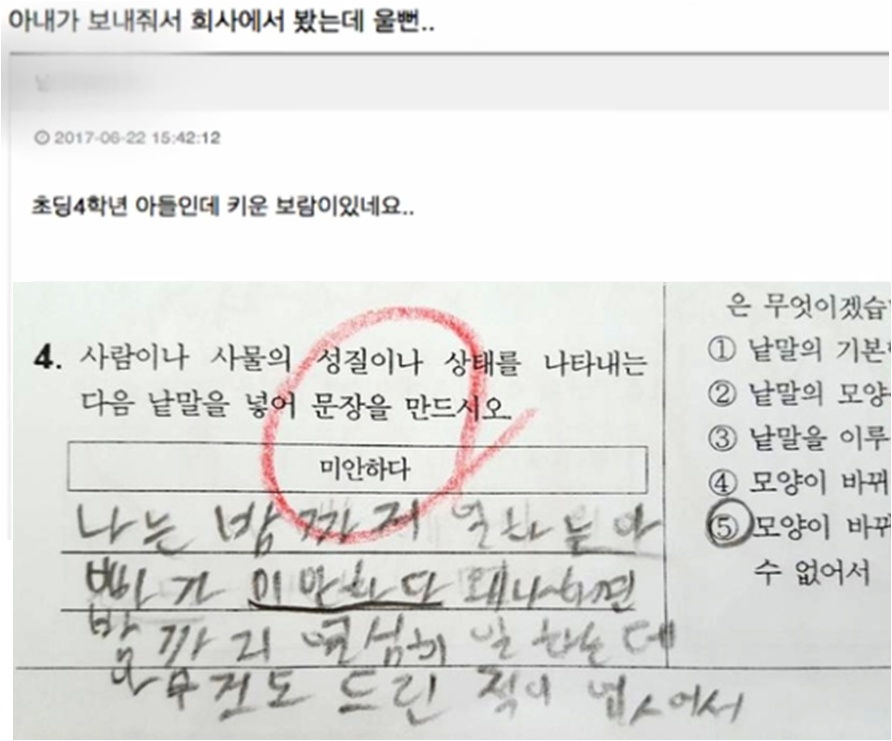 아내가 보내줘서 회사에서 봤는데 울뻔..
2017-06-22 15:42:12
초딩4학년 아들인데 키운 보람이있네요..
4. 사람이나 사물의 성질이나 상태를 나타내는
다음 낱말을 넣어 문장을 만드시오.
미안하다
나는 밤까지 일하는 아
빠가 미안하다 왜냐하면
밤까지 열심히 일하는데
아무것도 드린 적이 없어서
은 무엇이겠습
① 낱말의 기본
② 낱말의 모양
③ 낱말을 이루
④ 모양이 바뀌
⑤ 모양이 바뀌
수 없어서